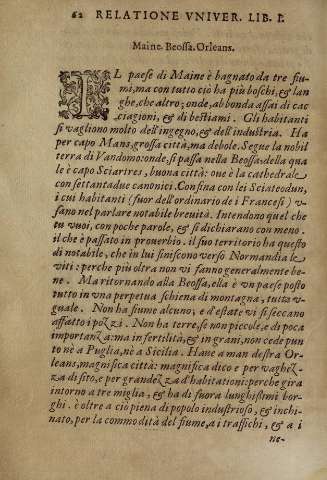 62 RELATIONE VNIVER. LIB. I.
Maine. Beossa. Orleans.
IL paese di Maine è bagnato da tre fiu-
mi, ma con tutto ciò ha più boschi, & lan
ghe, che altro; onde, abbonda assai di cac
ciagioni, & di bestiami. Gli habitanti
si vagliono molto dell'ingegno, & dell'industria. Ha
per capo Mans, grossa città, ma debole. Segue la nobil
terra di Vandomo: onde, si passa nella Beossa: della qua
le è capo Sciartres, buona città: oue è la cathedrale
con settantadue canonici. Confina con lei Sciateodun,
i cui habitanti (fuor dell'ordinario de i Francesi) v-
sano nel parlare notabile breuità. Intendono quel che
tu vuoi, con poche parole, & si dichiarano con meno.
il che è passato in prouerbio. il suo territorio ha questo
di notabile, che in lui finiscono verso Normandia le
viti: perche più oltra non vi fanno generalmente be
ne. Ma ritornando alla Beossa, ella è vn paese posto
tutto in vna perpetua schiena di montagna, tutta v-
guale. Non ha fiume alcuno, e d'estate vi si seccano
affatto i pozzi. Non ha terre, se non piccole, e di poca
importanza: ma in fertilità, & in grani, non cede pun
to nè a Puglia, nè a Sicilia. Haue a man destra Or-
leans, magnifica città: magnifica dico e per vaghez-
za di sito, e per grandezza d'habitationi: perche gira
intorno a tre miglia, & ha di fuora lunghissimi bor-
ghi. è oltre a ciò piena di popolo industrioso, & inchi-
nato, per la commodità del fiume, a i traffichi, & a i
ne-